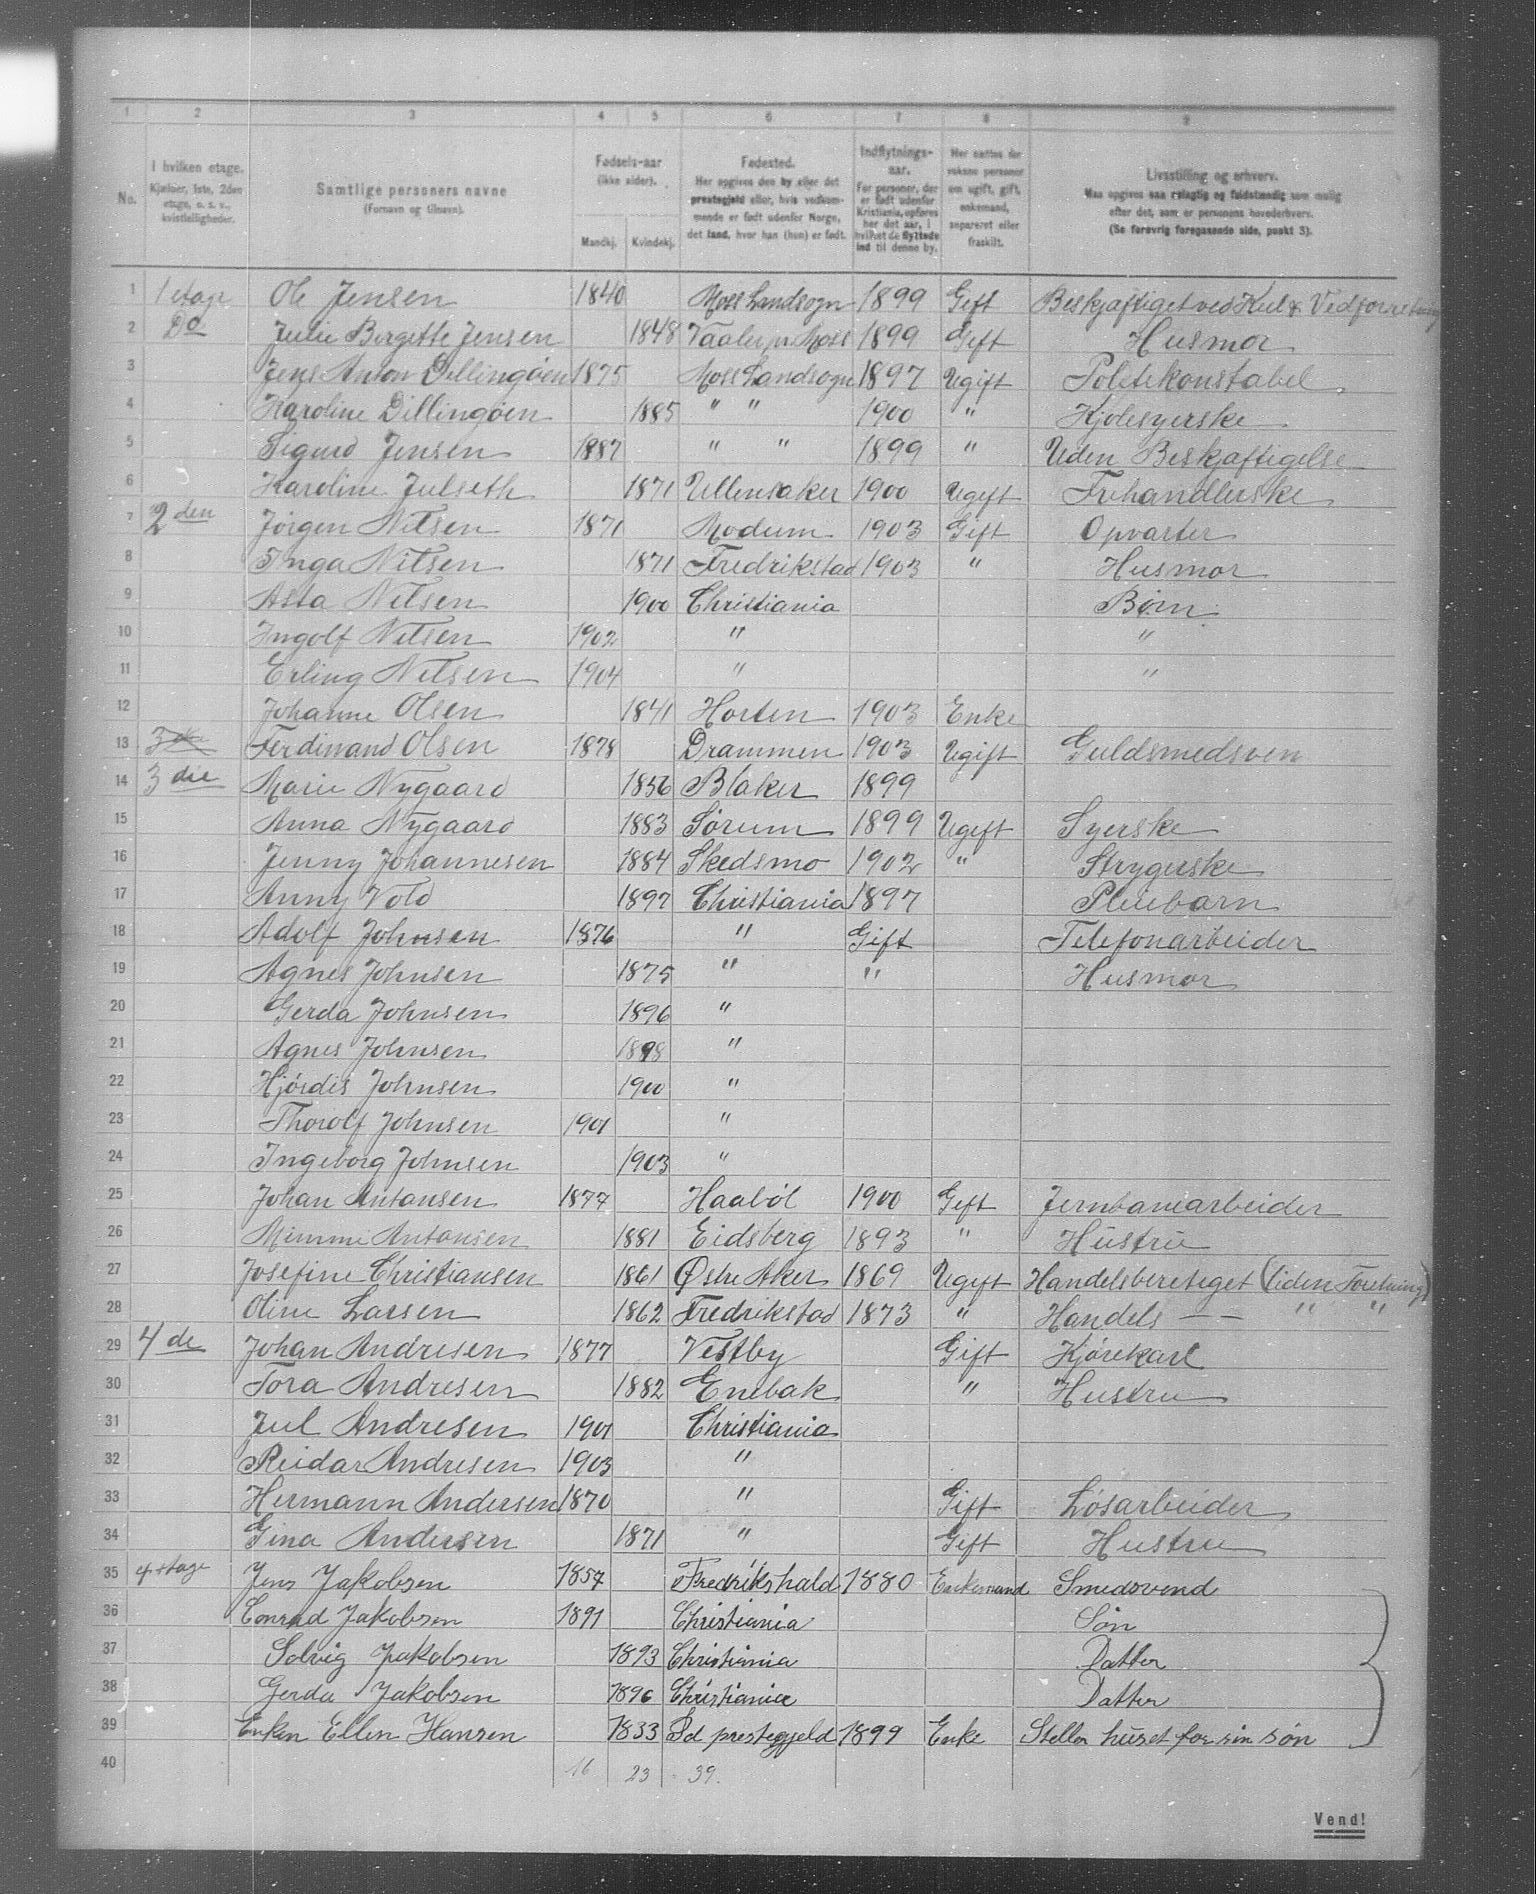 1 2 3 4 5 6 7 8 9
No. I hvilken etage. Kjælder, 1ste, 2den etage, o. s. v., kvistleiligheder. Samtlige personers navne (Fornavn og tilnavn). Fødsels-aar (ikke alder). Mandkj. Kvindekj. Fødested. Her opgives den by eller det prestegjeld eller, hvis vedkommende er født udenfor Norge, det land, hvor han (hun) er født. Indflytnings-aar. For personer, der er født udenfor Kristiania, opføres her det aar, i hvilket de flyttede ind til denne by. Her sættes for voksne personer om ugift, gift, enkemand, separeret eller fraskilt. Livsstilling og erhverv. Maa opgives saa nøiagtig og fuldstændig som mulig efter det, som er personens hovederhverv. (Se forøvrig foregaaende side, punkt 3).
1 1 etage Ole Jensen 1840 Moss Landsogn 1899 Gift Beskjæftiget ved Kul & Vedforretning
2 Do Julie Birgitte Jensen 1848 Vaaler pr Moss 1899 Gift Husmor
3 Jens Anton Dillingøen 1875 Moss Landsogn 1897 Ugift Politikonstabel
4 Karoline Dillingøen 1885 " " 1900 " Kjolesyerske
5 Sigurd Jensen 1887 " " 1899 " Uden Beskjæftigelse
6 Karoline Julseth 1871 Ullensaker 1900 Ugift Frihandlerske
7 2 den Jørgen Nilsen 1871 Modum 1903 Gift Opvarter
8 Inga Nilsen 1871 Fredrikstad 1903 " Husmor
9 Asta Nilsen 1900 Christiania Børn
10 Ingolf Nilsen 1902 " "
11 Erling Nilsen 1904 " "
12 Johanne Olsen 1841 Horten 1903 Enke
13 Ferdinand Olsen 1878 Drammen 1903 Ugift Guldsmedsven
14 3 die Marie Nygaard 1856 Blaker 1899
15 Anna Nygaard 1883 Sørum 1899 Ugift Syerske
16 Jenny Johannesen 1884 Skedsmo 1902 " Strygerske
17 Anny Vold 1897 Christiania 1897 Pleiebarn
18 Adolf Johnsen 1876 " Gift Telefonarbeider
19 Agnes Johnsen 1875 " " Husmor
20 Gerda Johnsen 1896 "
21 Agnes Johnsen 1898 "
22 Hjördis Johnsen 1900 "
23 Thorolf Johnsen 1901 "
24 Ingeborg Johnsen 1903 "
25 Johan Antonsen 1877 Haabøl 1900 Gift Jernbanearbeider
26 Mimmi Antonsen 1881 Eidsberg 1893 " Hustru
27 Josefine Christiansen 1861 Østre Aker 1869 Ugift Handelsberetiget (liden Foretning)
28 Oline Larsen 1862 Fredrikstad 1873 " Handels — — " "
29 4 de Johan Andresen 1877 Vestby Gift Kjørekarl
30 Tora Andresen 1882 Enebak " Hustru
31 Jul Andresen 1901 Christiania
32 Reidar Andresen 1903 "
33 Hermann Andersen 1870 " Gift Løsarbeider
34 Gina Andersen 1871 " Gift Hustru
35 4 etage Jens Jakobsen 1857 Fredrikshald 1880 Enkemand Smedsvend
36 Conrad Jakobsen 1891 Christiania Søn
37 Solvig Jakobsen 1893 Christiania Datter
38 Gerda Jakobsen 1896 Christiania Datter
39 Enken Ellen Hansen 1833 Id prestegjeld 1899 Enke Steller huset for sin søn
40 16 23 39.
Vend!